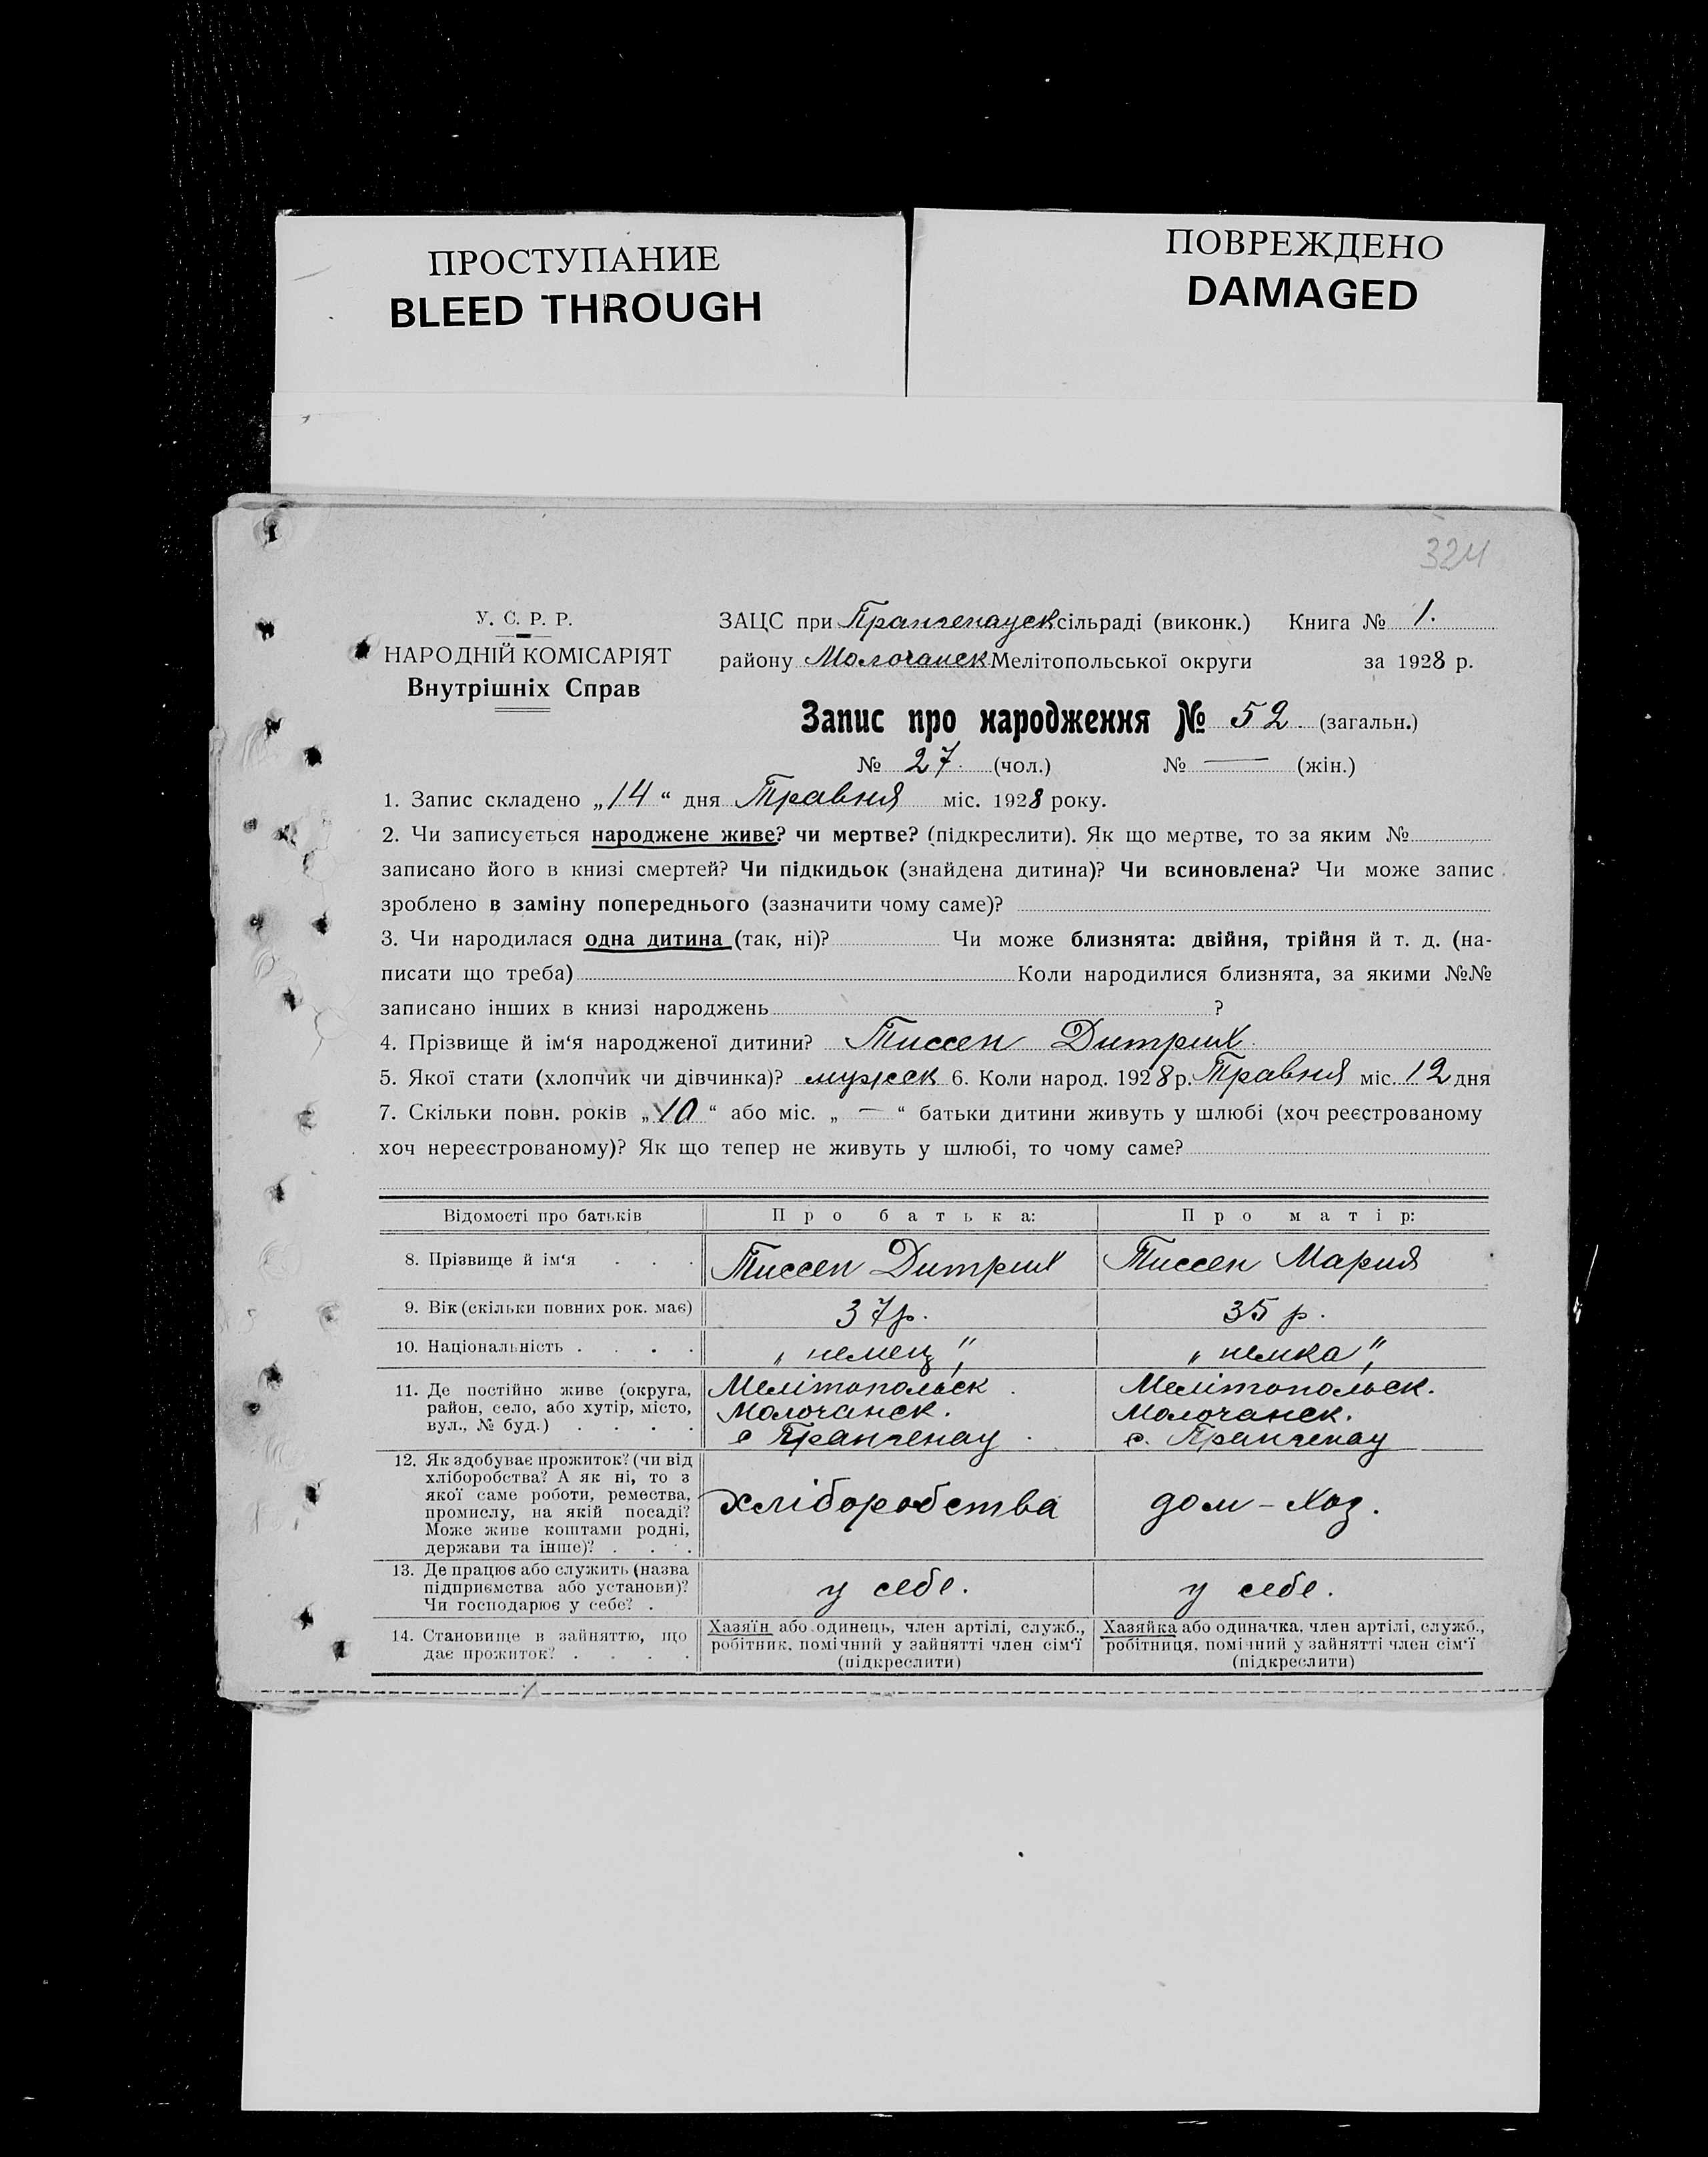 ПРОСТУПАНИЕ
BLEED THROUGH
ПОВРЕЖДЕНО
DAMAGED
324
У. С. Р. Р.
НАРОДНІЙ КОМІСАРІЯТ
Внутрішніх Справ
ЗАЦС при Прангенауск сільраді (виконк.) Книга № 1.
району Молочанск Мелітопольської округи за 1928 р.
Запис про народження № 52. (загальн.)
№ 27. (чол.) № — (жін.)
1. Запис складено „14“ дня Травня міс. 1928 року.
2. Чи записується народжене живе? чи мертве? (підкреслити). Як що мертве, то за яким №
записано його в книзі смертей? Чи підкидьок (знайдена дитина)? Чи всиновлена? Чи може запис
зроблено в заміну попереднього (зазначити чому саме)?
3. Чи народилася одна дитина (так, ні)? Чи може близнята: двійня, трійня й т. д. (на-
писати що треба) Коли народилися близнята, за якими №№
записано інших в книзі народжень ?
4. Прізвище й ім‘я народженої дитини? Тиссен Дитрих.
5. Якої стати (хлопчик чи дівчинка)? мужск 6. Коли народ. 1928 р. Травня міс. 12 дня
7. Скільки повн. років „10“ або міс. „—“ батьки дитини живуть у шлюбі (хоч реєстрованому
хоч нереєстрованому)? Як що тепер не живуть у шлюбі, то чому саме?
Відомості про батьків Про батька: Про матір:
8. Прізвище й ім‘я . . . Тиссен Дитрих Тиссен Мария
9. Вік (скільки повних рок. має) 37р. 35 р.
10. Національність . . . . „немец“, „немка“,
11. Де постійно живе (округа,
район, село, або хутір, місто,
вул., № буд.) . . . .
Мелітопольск.
Молочанск.
с Прангенау.
Мелітопольск.
Молочанск.
с. Прангенау
12. Як здобуває прожиток? (чи від
хліборобства? А як ні, то з
якої саме роботи, ремества,
промислу, на якій посаді?
Може живе коштами родні,
держави та інше)? . . . .
хліборобства
дом - хоз.
13. Де працює або служить (назва
підприємства або установи)?
Чи господарює у себе? .
у себе.
у себе.
14. Становище в зайняттю, що
дає прожиток? . . . .
Хазяїн або одинець, член артілі, служб.,
робітник, помічний у зайнятті член сім‘ї
(підкреслити)
Хазяйка або одиначка, член артілі, служб.,
робітниця, помічний у зайнятті член сім‘ї
(підкреслити)